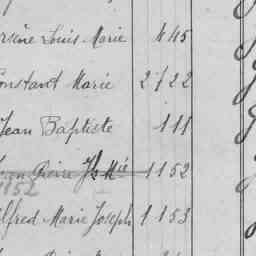 Louis Marie 445
Constant Marie 2722
Jean Baptiste 111
Pierre Js Mie 1152
1152
Alfred Marie Joseph 1153